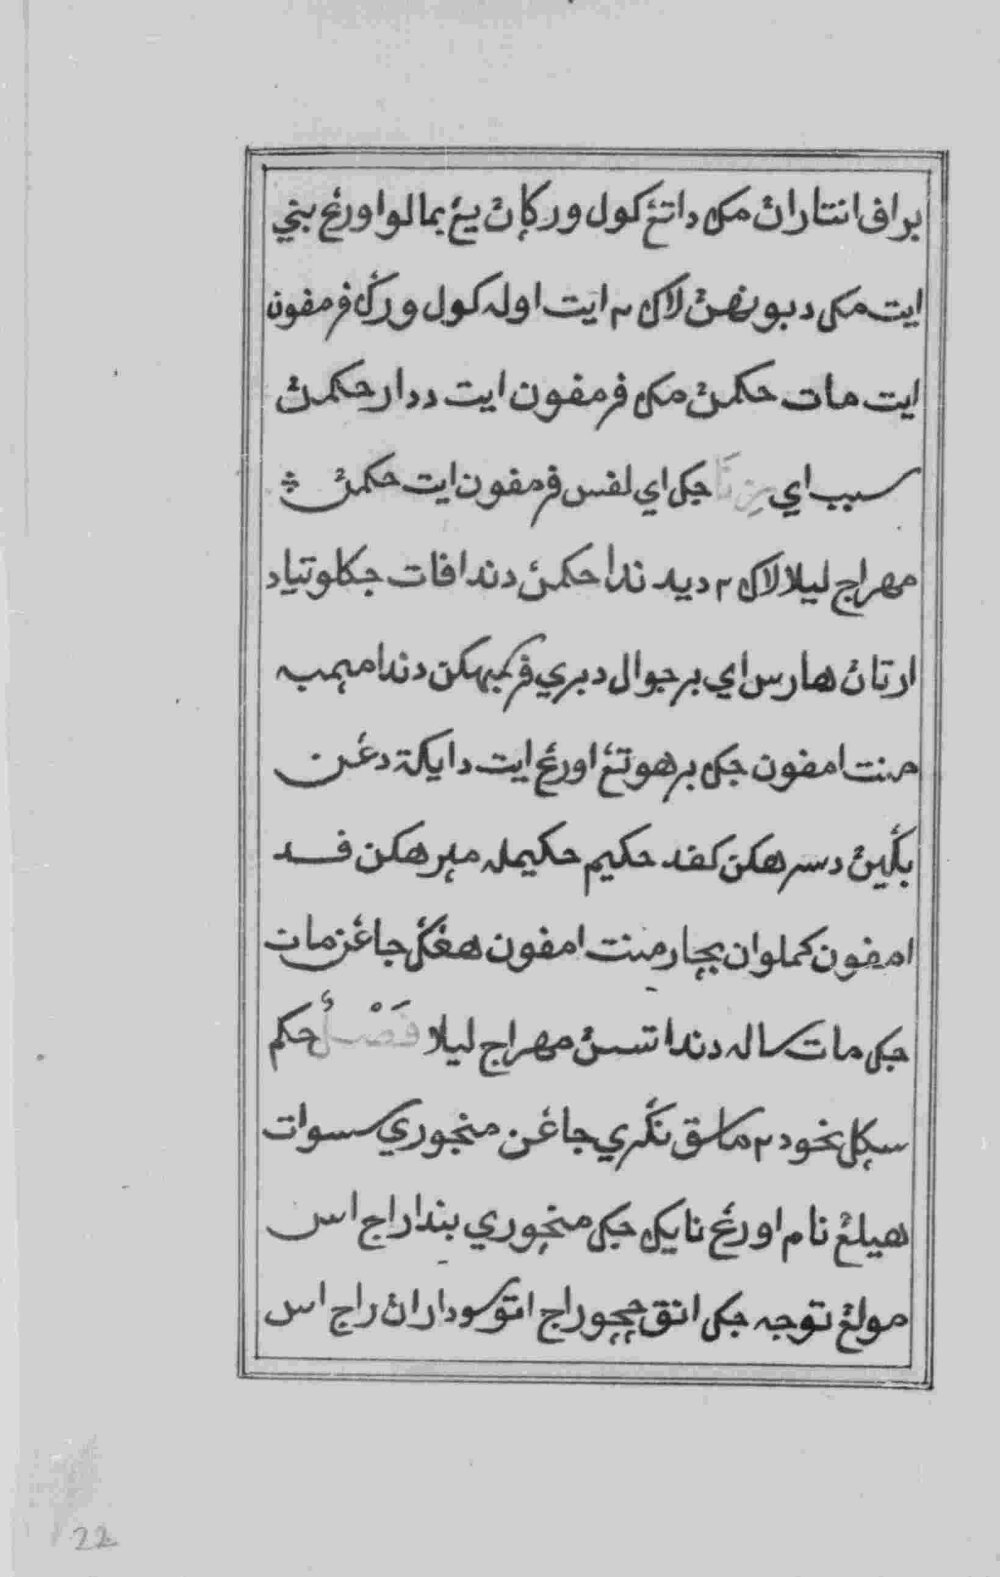 براف انتاران مک داتڠ کول ورکان يڠ بمالوا اورڠ بني
ايت مک دبونهن لاک ٢ ايت اوله کول ورک فرمفون
ايت مات حکمن مک فرمفون ايت ددار حکمن
سبب اي زِنَا جک اي لفس فرمفون ايت حکمن
مهراج ليلا لاک ٢ ديد ندا حکمن دندا فات جکلو تياد
ارتان هارس اي برجوال دبري فرکمبهکن دندا مهمبه
منت امفون جک برهوتڠ اورڠ ايت دايکة دڠن
بݢين دسرهکن کفد حکيم حکيمله ممبرهکن فد
امفون کملوان بچار منت امفون هڠݢ جاڠن مات
جک مات ساله دندا تسن مهراج ليلا فَصْلٌ حکم
سکل نخود ٢ ماسق نݢري جاڠن منچوري سسوات
هيلڠ نام اورڠ نايک جک منچوري بندا راج اس
مولڠ توجه جک انق چچو راج اتو سودارا راج اس
22